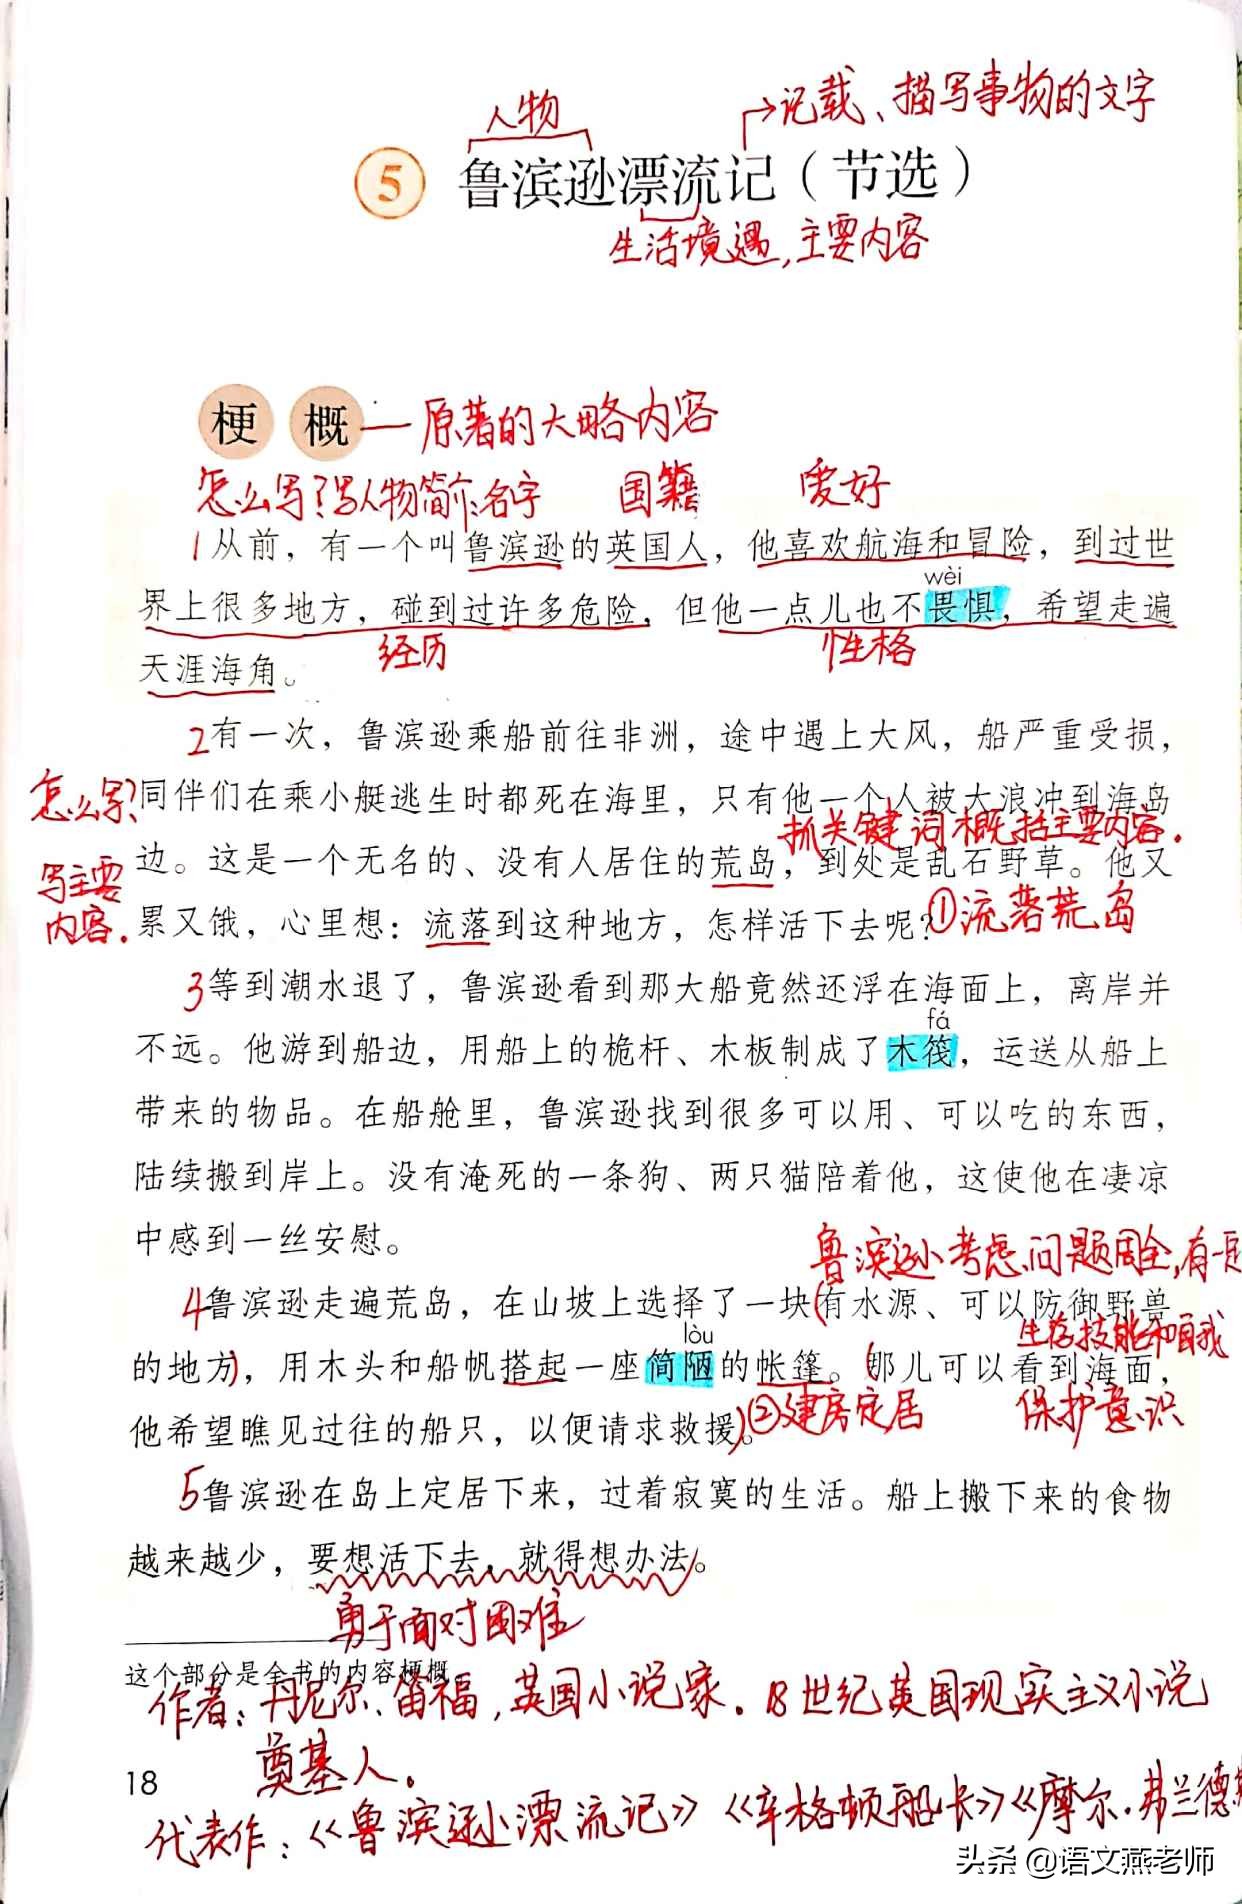 人物
记载、描写事物的文字
5 鲁滨逊漂流记（节选）
生活境遇,主要内容
梗概 — 原著的大略内容
怎么写？写人物简介:名字 国籍 爱好
1从前，有一个叫鲁滨逊的英国人，他喜欢航海和冒险，到过世
wèi
界上很多地方，碰到过许多危险，但他一点儿也不畏惧，希望走遍
经历 性格
天涯海角。
2有一次，鲁滨逊乘船前往非洲，途中遇上大风，船严重受损，
怎么写?
同伴们在乘小艇逃生时都死在海里，只有他一个人被大浪冲到海岛
抓关键词概括主要内容.
边。这是一个无名的、没有人居住的荒岛，到处是乱石野草。他又
写主要
内容.
①流落荒岛
累又饿，心里想：流落到这种地方，怎样活下去呢？
3等到潮水退了，鲁滨逊看到那大船竟然还浮在海面上，离岸并
fá
不远。他游到船边，用船上的桅杆、木板制成了木筏，运送从船上
带来的物品。在船舱里，鲁滨逊找到很多可以用、可以吃的东西，
陆续搬到岸上。没有淹死的一条狗、两只猫陪着他，这使他在凄凉
中感到一丝安慰。
鲁滨逊考虑问题周全,有一定
4鲁滨逊走遍荒岛，在山坡上选择了一块(有水源、可以防御野兽
生存技能和自我
lòu
的地方)，用木头和船帆搭起一座简陋的帐篷。(那儿可以看到海面，
②建房定居 保护意识
他希望瞧见过往的船只，以便请求救援)。
5鲁滨逊在岛上定居下来，过着寂寞的生活。船上搬下来的食物
越来越少，要想活下去，就得想办法。
勇于面对困难
这个部分是全书的内容梗概。
作者:丹尼尔、笛福,英国小说家.18世纪英国现实主义小说
奠基人.
18
代表作:《鲁滨逊漂流记》《辛格顿船长》《摩尔.弗兰德斯
头条 @语文燕老师